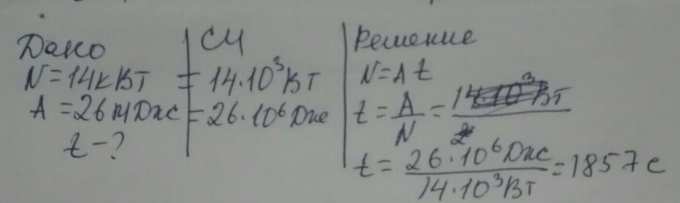 Дано
N=14кВт
A=26МДж
t-?
СИ
=14·10³Вт
=26·10⁶Дж
Решение
N=At
t=A/N=
t=26·10⁶Дж/14·10³Вт=1857с